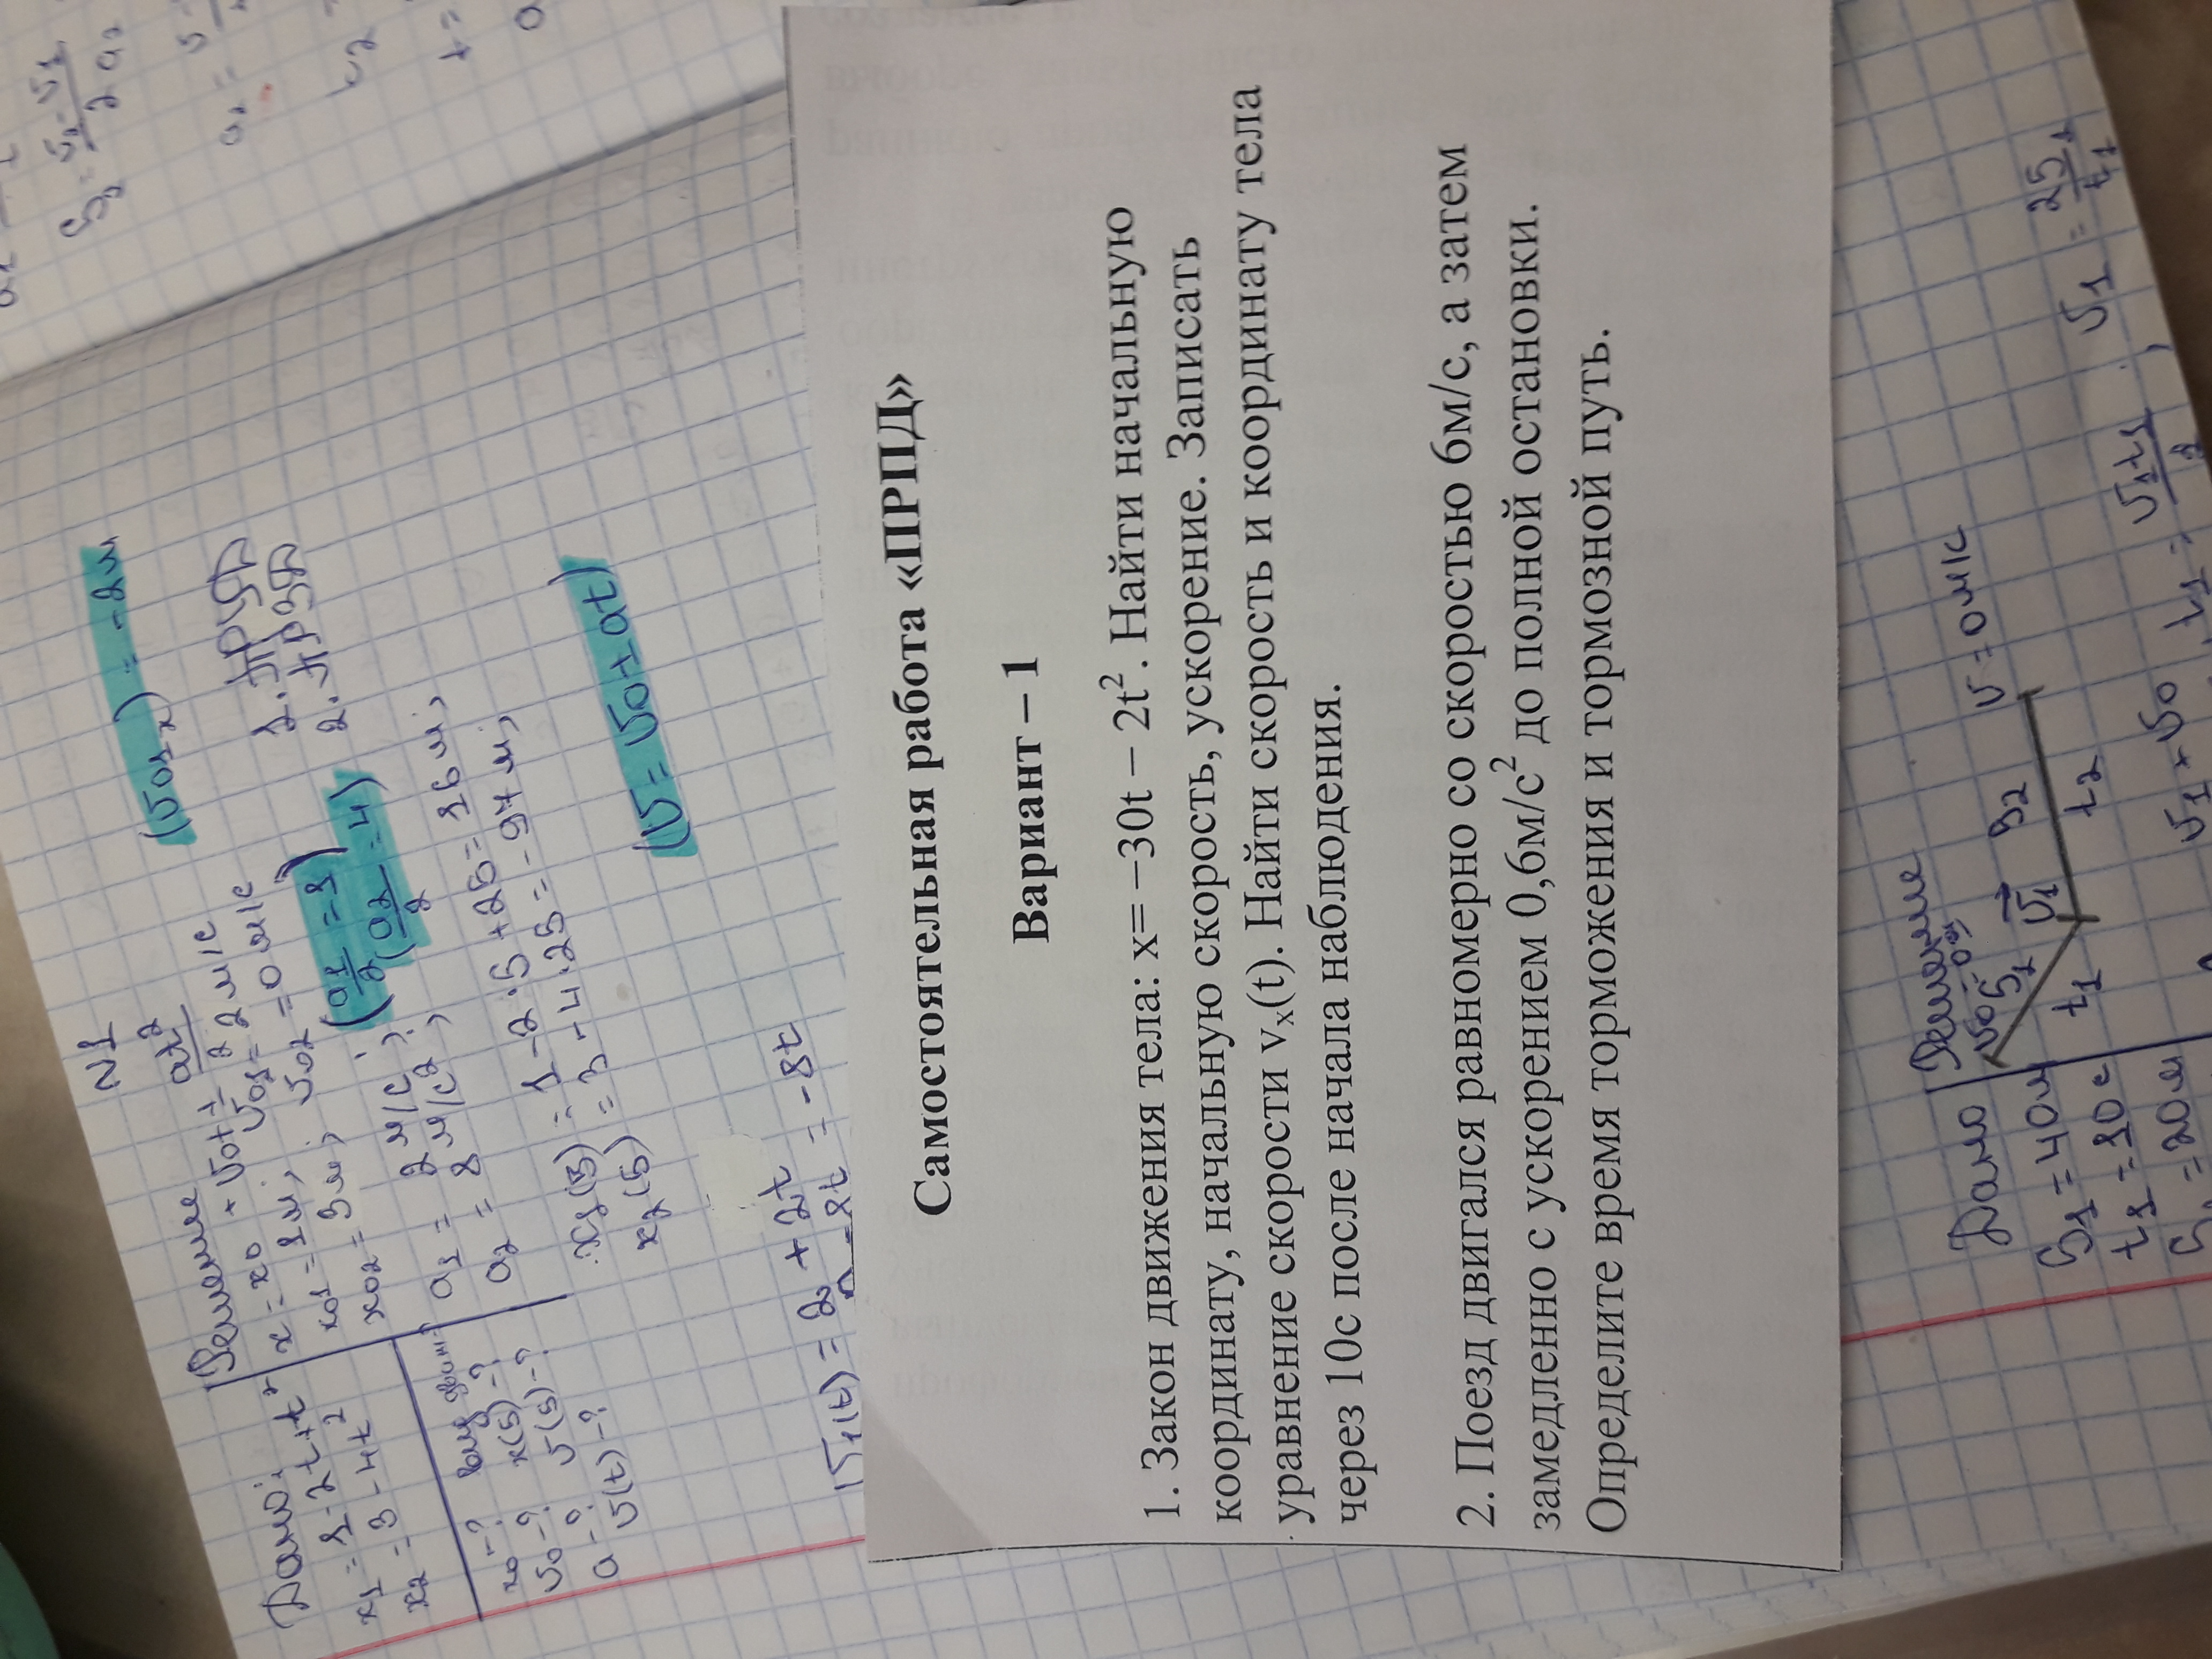 Самостоятельная работа «ПРПД»
Вариант – 1
1. Закон движения тела: x= −30t − 2t². Найти начальную
координату, начальную скорость, ускорение. Записать
уравнение скорости vₓ(t). Найти скорость и координату тела
через 10с после начала наблюдения.
2. Поезд двигался равномерно со скоростью 6м/с, а затем
замедленно с ускорением 0,6м/с² до полной остановки.
Определите время торможения и тормозной путь.
N1
Дано:
x1 = 1-2t+t²
x2 = 3-4t²
x0-?
υ0-? x(5)-?
a-? υ(5)-?
υ(t)-?
Решение
x = x0 + υ0t + at²/2
x01 = 1м; υ01 = 2м/с
x02 = 3м; υ02 = 0м/с
(υ01x) = -2м
1. ПРУД
2. ПРЗД
(a1/2 = 1)
(a2/2 = 4)
a1 = 2м/с²;
a2 = 8м/с²;
x1(5) = 1-2·5+25 = 16м;
x2(5) = 3-4·25 = -97м;
(υ = υ0+at)
υ1(t) = 2+2t
-8t = -8t
Дано
S1 = 40м
t1 = 10с
= 20м
Решение
S2
υ1
t1
t2
υ = 0м/с
υ1+υ0
t1 =
υ1t1/2
υ1 = 2S1/t1